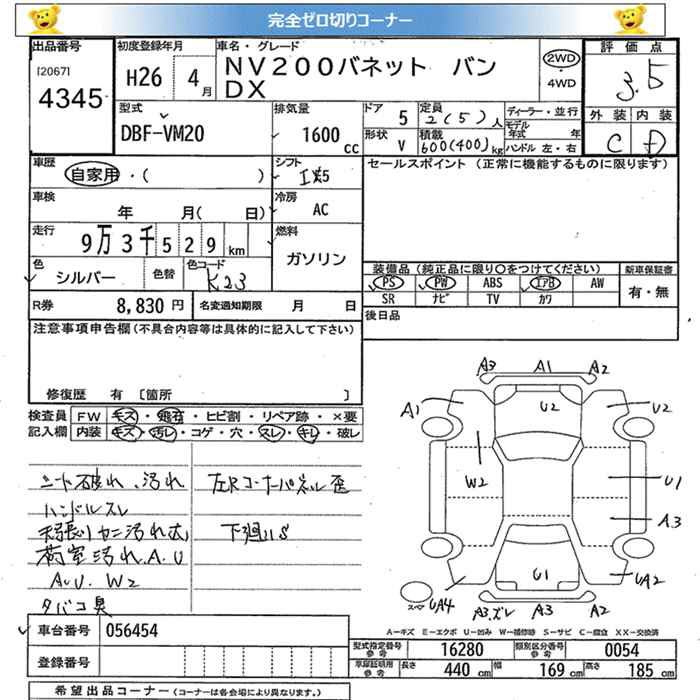 完全ゼロ切りコーナー
出品番号 初度登録年月 車名・グレード 評価点
[2067] 4345 H26 4月 NV200バネット バン 2WD 3.5
DX 4WD
型式 排気量 ドア 定員 ディーラー・並行 外装 内装
DBF-VM20 1600cc 5 2(5)人 モデル年式 年 C D
形状 V 積載 600(400)kg ハンドル 左・右
車歴 シフト セールスポイント (正常に機能するものに限ります)
自家用・( ) 5
車検 冷房
年 月( 日) AC
走行 燃料
9万3千529km ガソリン
色 色替 色コード 装備品(純正品に限り○をつけてください) 新車保証書
シルバー K23 PS PW ABS エアB AW 有・無
SR ナビ TV カワ
R券 8,830円 名変通知期限 月 日 後日品
注意事項申告欄(不具合内容等は具体的に記入して下さい)
修復歴 有 [箇所 ]
検査員 FW キズ・飛石・ヒビ割・リペア跡・×要
記入欄 内装 キズ・汚レ・コゲ・穴・スレ・キレ・破レ
シート破れ、汚れ 左Rコーナーパネル歪
ハンドルスレ
天張り カニ汚れ大 下廻りS
荷室汚れ.A.U
A.U.W2
タバコ臭
A3 A1 A2
A1 U2 U2
W2 U1
A3
U1 UA2
スペア UA4 A3.ズレ A3 A2
A-キズ E-エクボ U-凹み W-補修跡 S-サビ C-腐食 XX-交換済
車台番号 056454
登録番号
型式指定番号 参考 16280 類別区分番号 参考 0054
車庫証明用 参考 長さ 440cm 幅 169cm 高さ 185cm
希望出品コーナー (コーナーは各会場により異なります。)